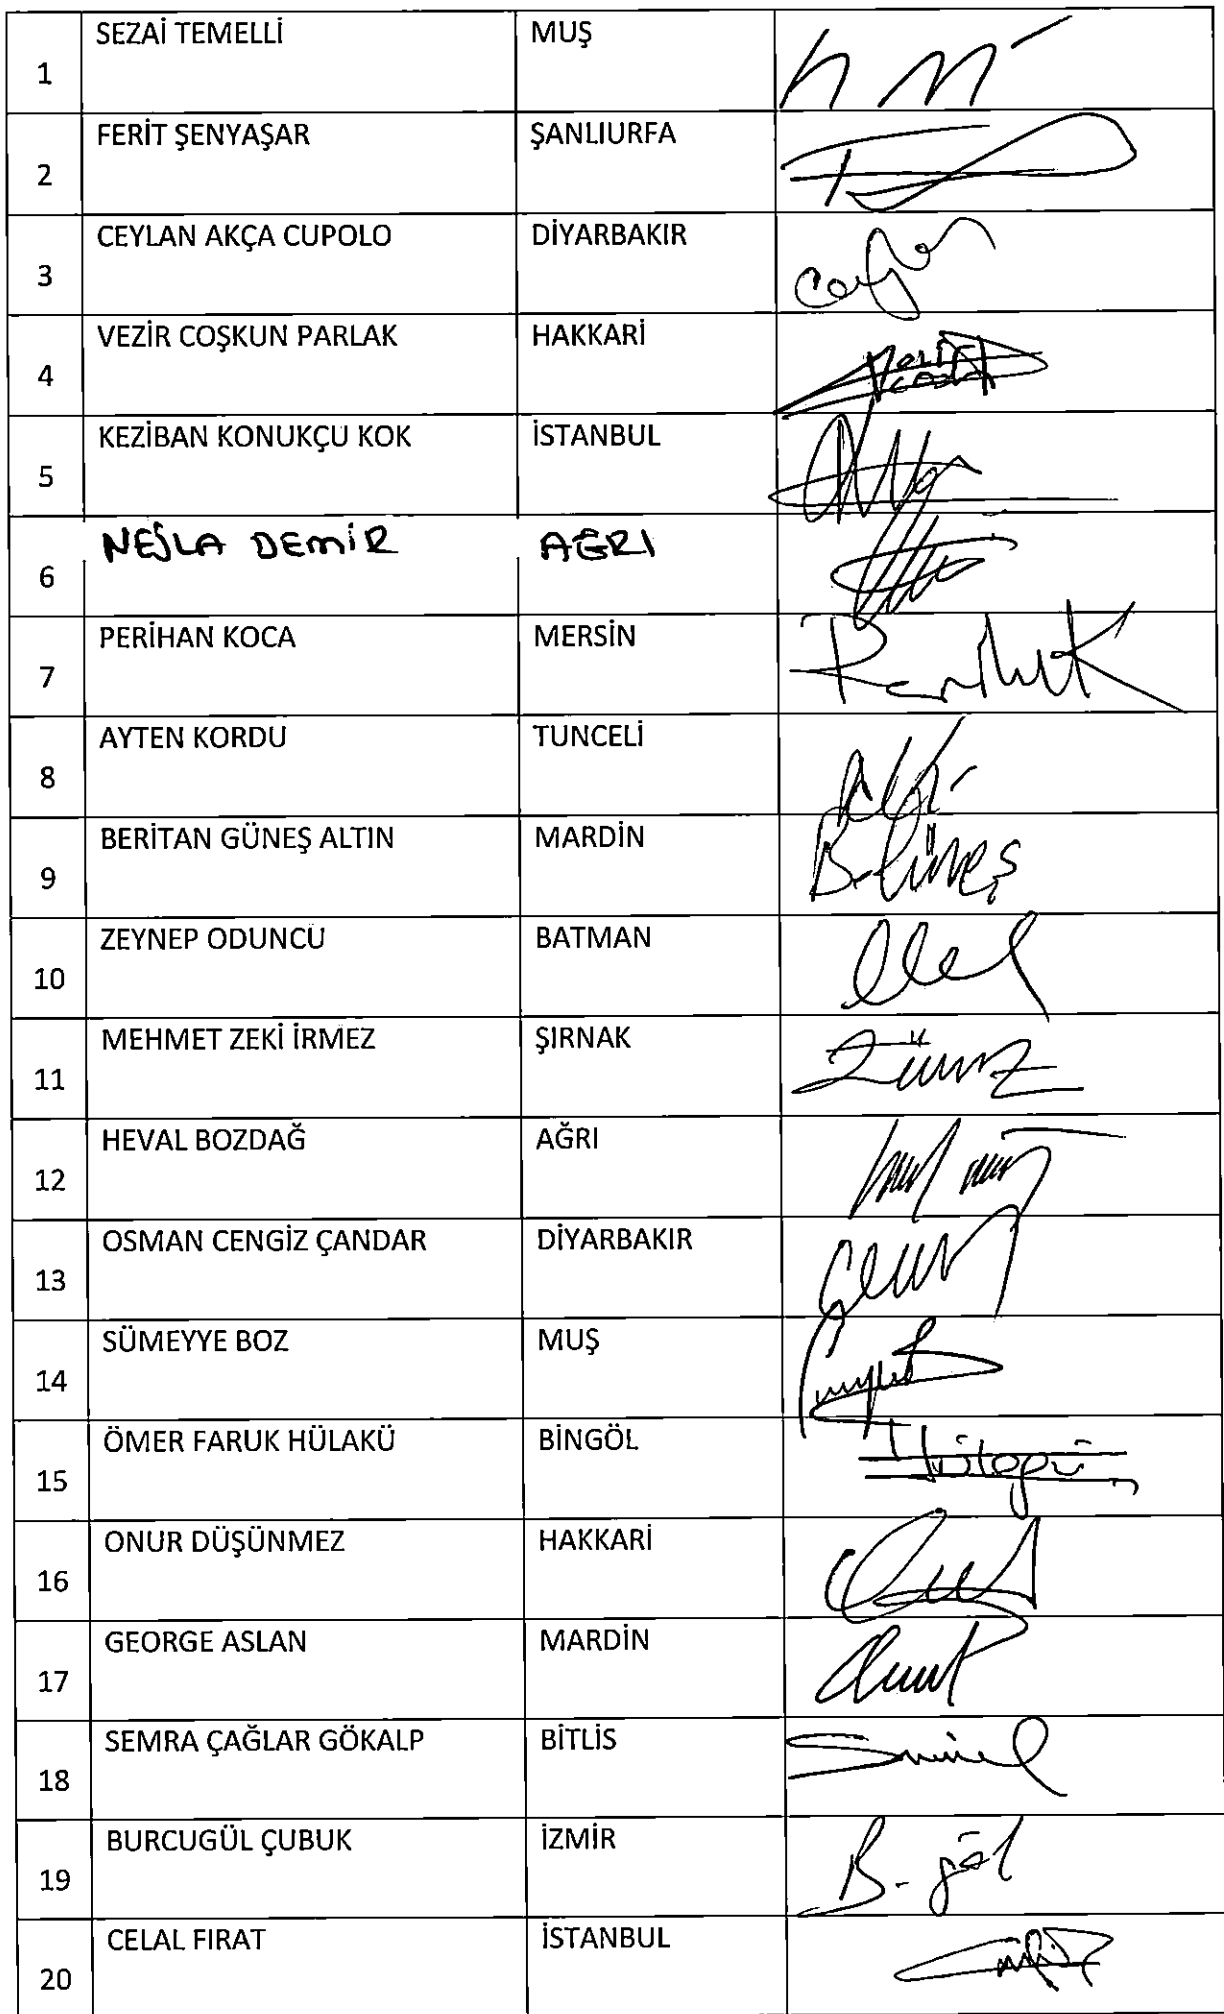 1 SEZAİ TEMELLİ MUŞ
2 FERİT ŞENYAŞAR ŞANLIURFA
3 CEYLAN AKÇA CUPOLO DİYARBAKIR
4 VEZİR COŞKUN PARLAK HAKKARİ
5 KEZİBAN KONUKÇU KOK İSTANBUL
6 NEJLA DEMİR AĞRI
7 PERİHAN KOCA MERSİN
8 AYTEN KORDU TUNCELİ
9 BERİTAN GÜNEŞ ALTIN MARDİN B. Güneş
10 ZEYNEP ODUNCU BATMAN
11 MEHMET ZEKİ İRMEZ ŞIRNAK
12 HEVAL BOZDAĞ AĞRI
13 OSMAN CENGİZ ÇANDAR DİYARBAKIR
14 SÜMEYYE BOZ MUŞ
15 ÖMER FARUK HÜLAKÜ BİNGÖL
16 ONUR DÜŞÜNMEZ HAKKARİ
17 GEORGE ASLAN MARDİN
18 SEMRA ÇAĞLAR GÖKALP BİTLİS
19 BURCUGÜL ÇUBUK İZMİR
20 CELAL FIRAT İSTANBUL